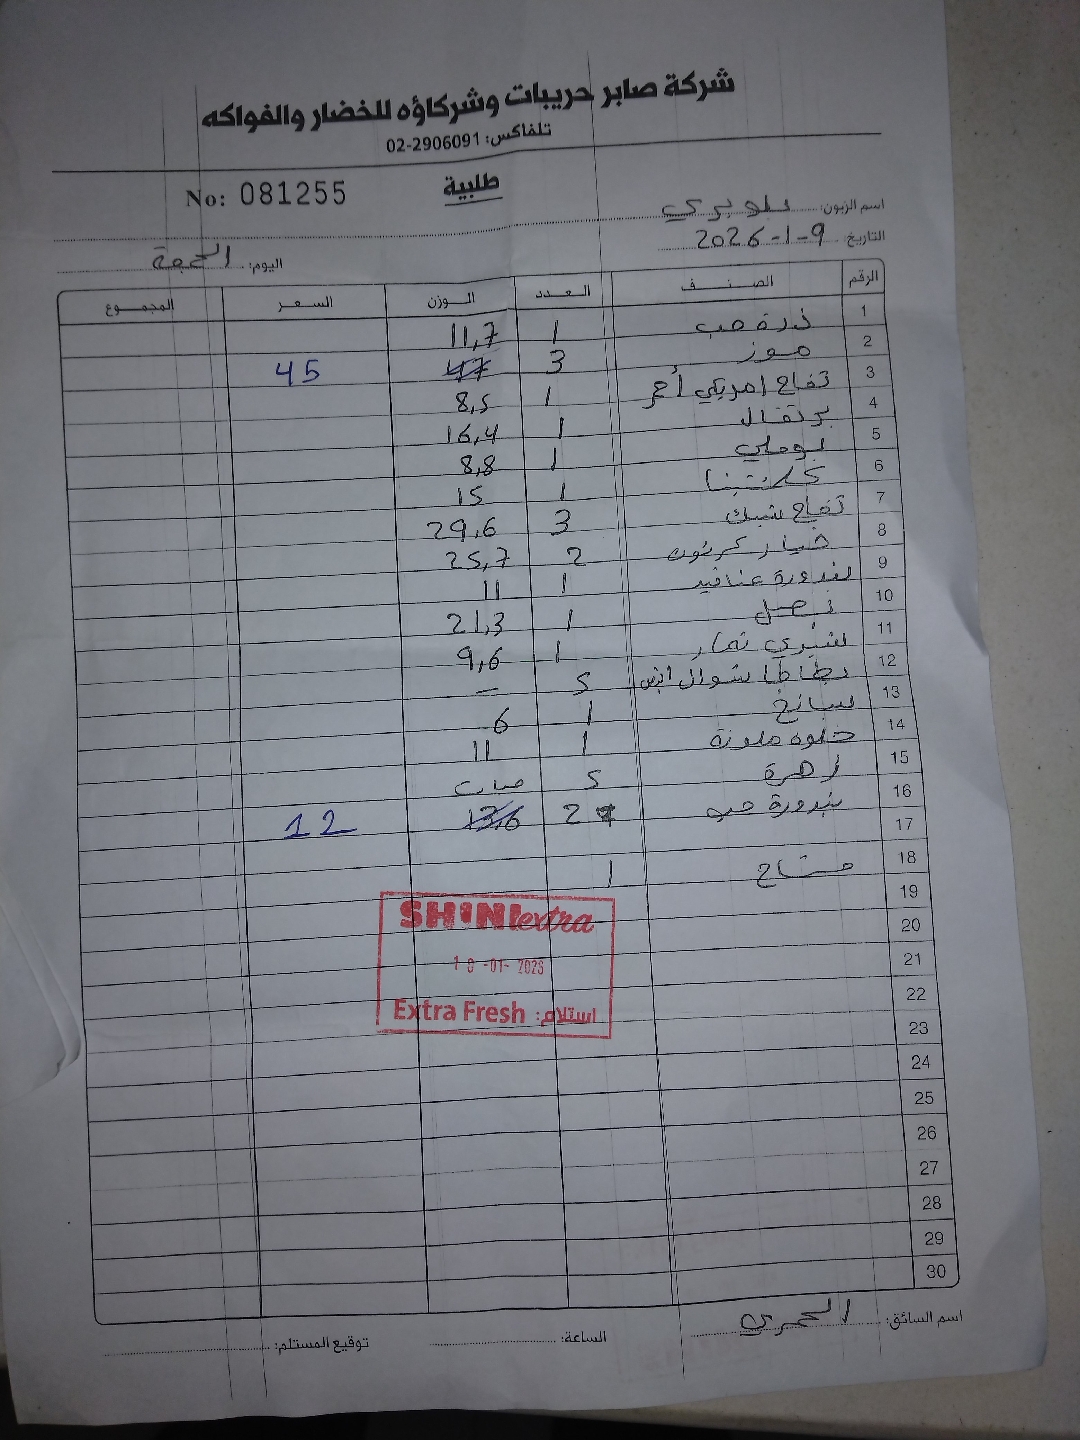 شركة صابر حريبات وشركاؤه للخضار والفواكه
تلفاكس: 02-2906091
طلبية
No: 081255
اسم الزبون: بلوبري
التاريخ: 9-1-2026
اليوم: الجمعة
الرقم الصنف العدد الوزن السعر المجموع
1 ذرة حب 1 11,7
2 موز 3 47 45
3 تفاح امريكي أحمر 1 8,5
4 برتقال 1 16,4
5 بوملي 1 8,8
6 كلمنتينا 1 15
7 تفاح شبك 3 29,6
8 خيار كرتون 2 25,7
9 بندورة عناقيد 1 11
10 بصل 1 21,3
11 شيري تمار 1 9,6
12 بطاطا شوال ابيض 5 -
13 سبانخ 1 6
14 حلوه ملونة 1 11
15 زهرة 5 حبات
16 بندورة حب 2 13,6 12
17
18 مشتاح 1
19
20
21
22
23
24
25
26
27
28
29
30
SHINI extra
10 -01- 2026
Extra Fresh :استلام
اسم السائق:
الساعة:
توقيع المستلم: